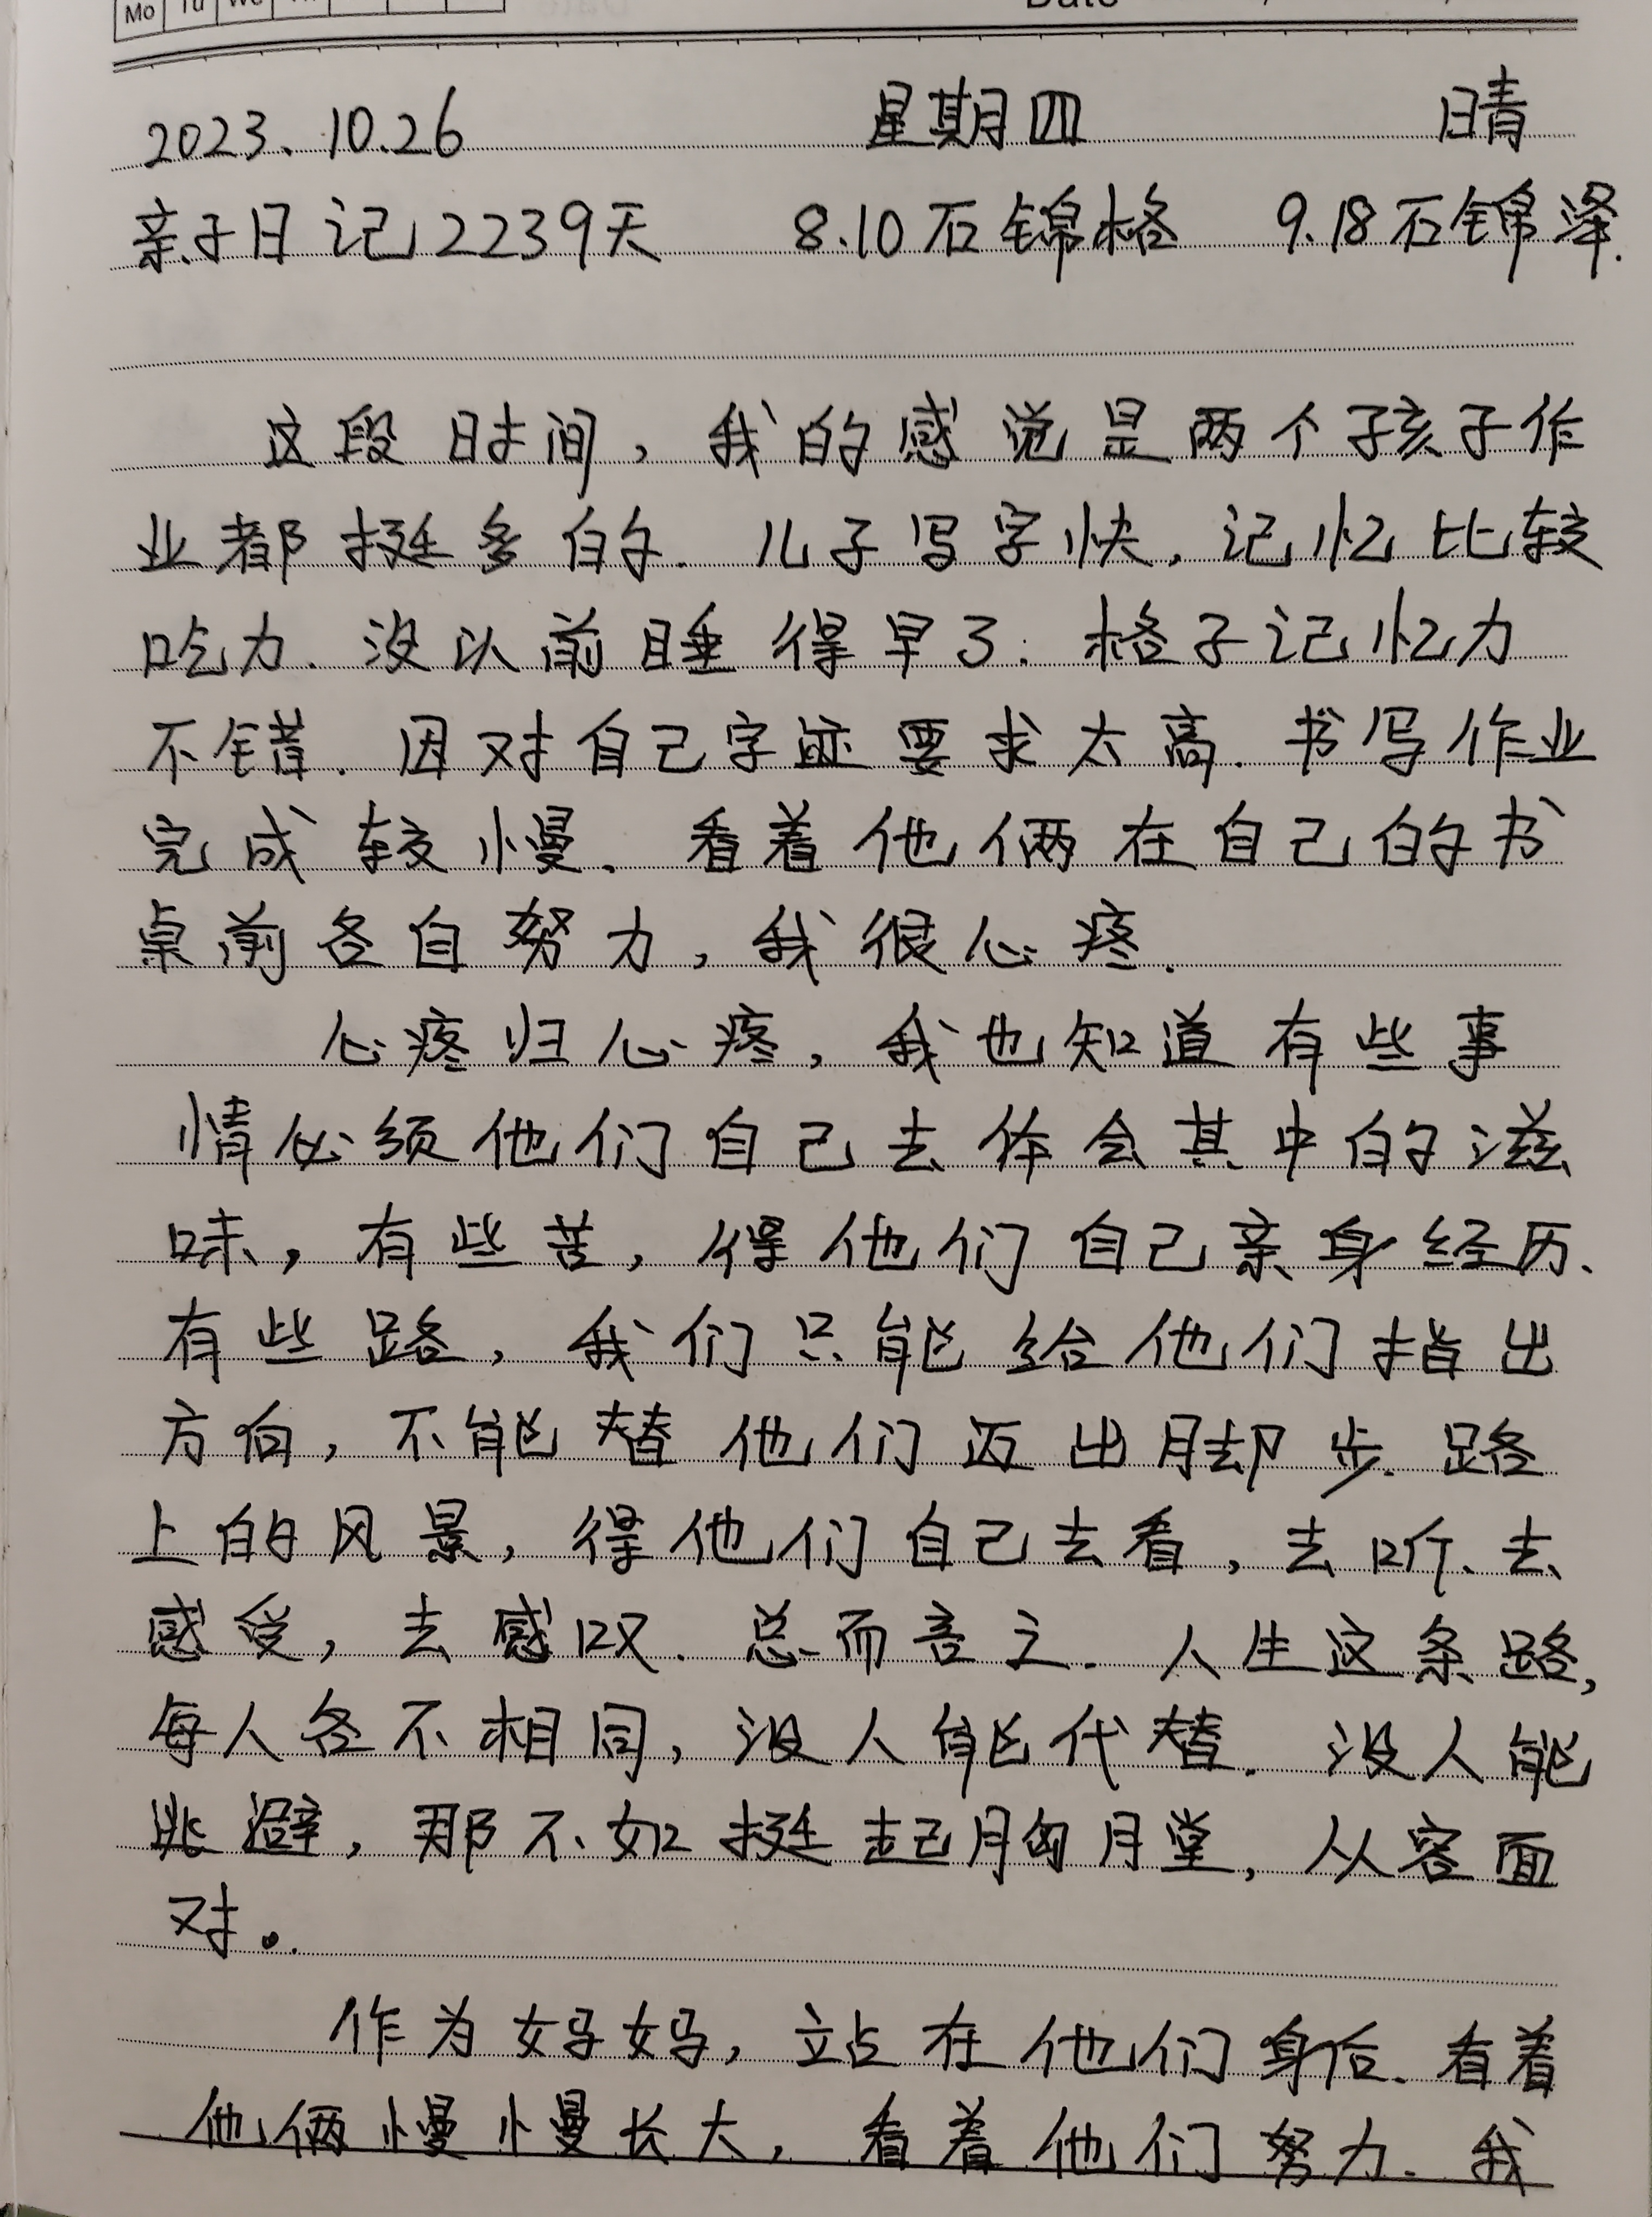 Mo Tu We
Date
2023.10.26 星期四 晴
亲子日记2239天 8.10石锦格 9.18石锦泽.
这段时间,我的感觉是两个孩子作
业都挺多的.儿子写字快,记忆比较
吃力.没以前睡得早了.格子记忆力
不错.因对自己字迹要求太高.书写作业
完成较慢.看着他俩在自己的书
桌前各自努力,我很心疼.
心疼归心疼,我也知道有些事
情必须他们自己去体会其中的滋
味,有些苦,得他们自己亲身经历、
有些路,我们只能给他们指出
方向,不能替他们迈出脚步.路
上的风景,得他们自己去看,去听、去
感受,去感叹.总而言之.人生这条路,
每人各不相同,没人能代替.没人能
逃避,那不如挺起胸膛,从容面
对。
作为妈妈,站在他们身后.看着
他俩慢慢长大,看着他们努力.我